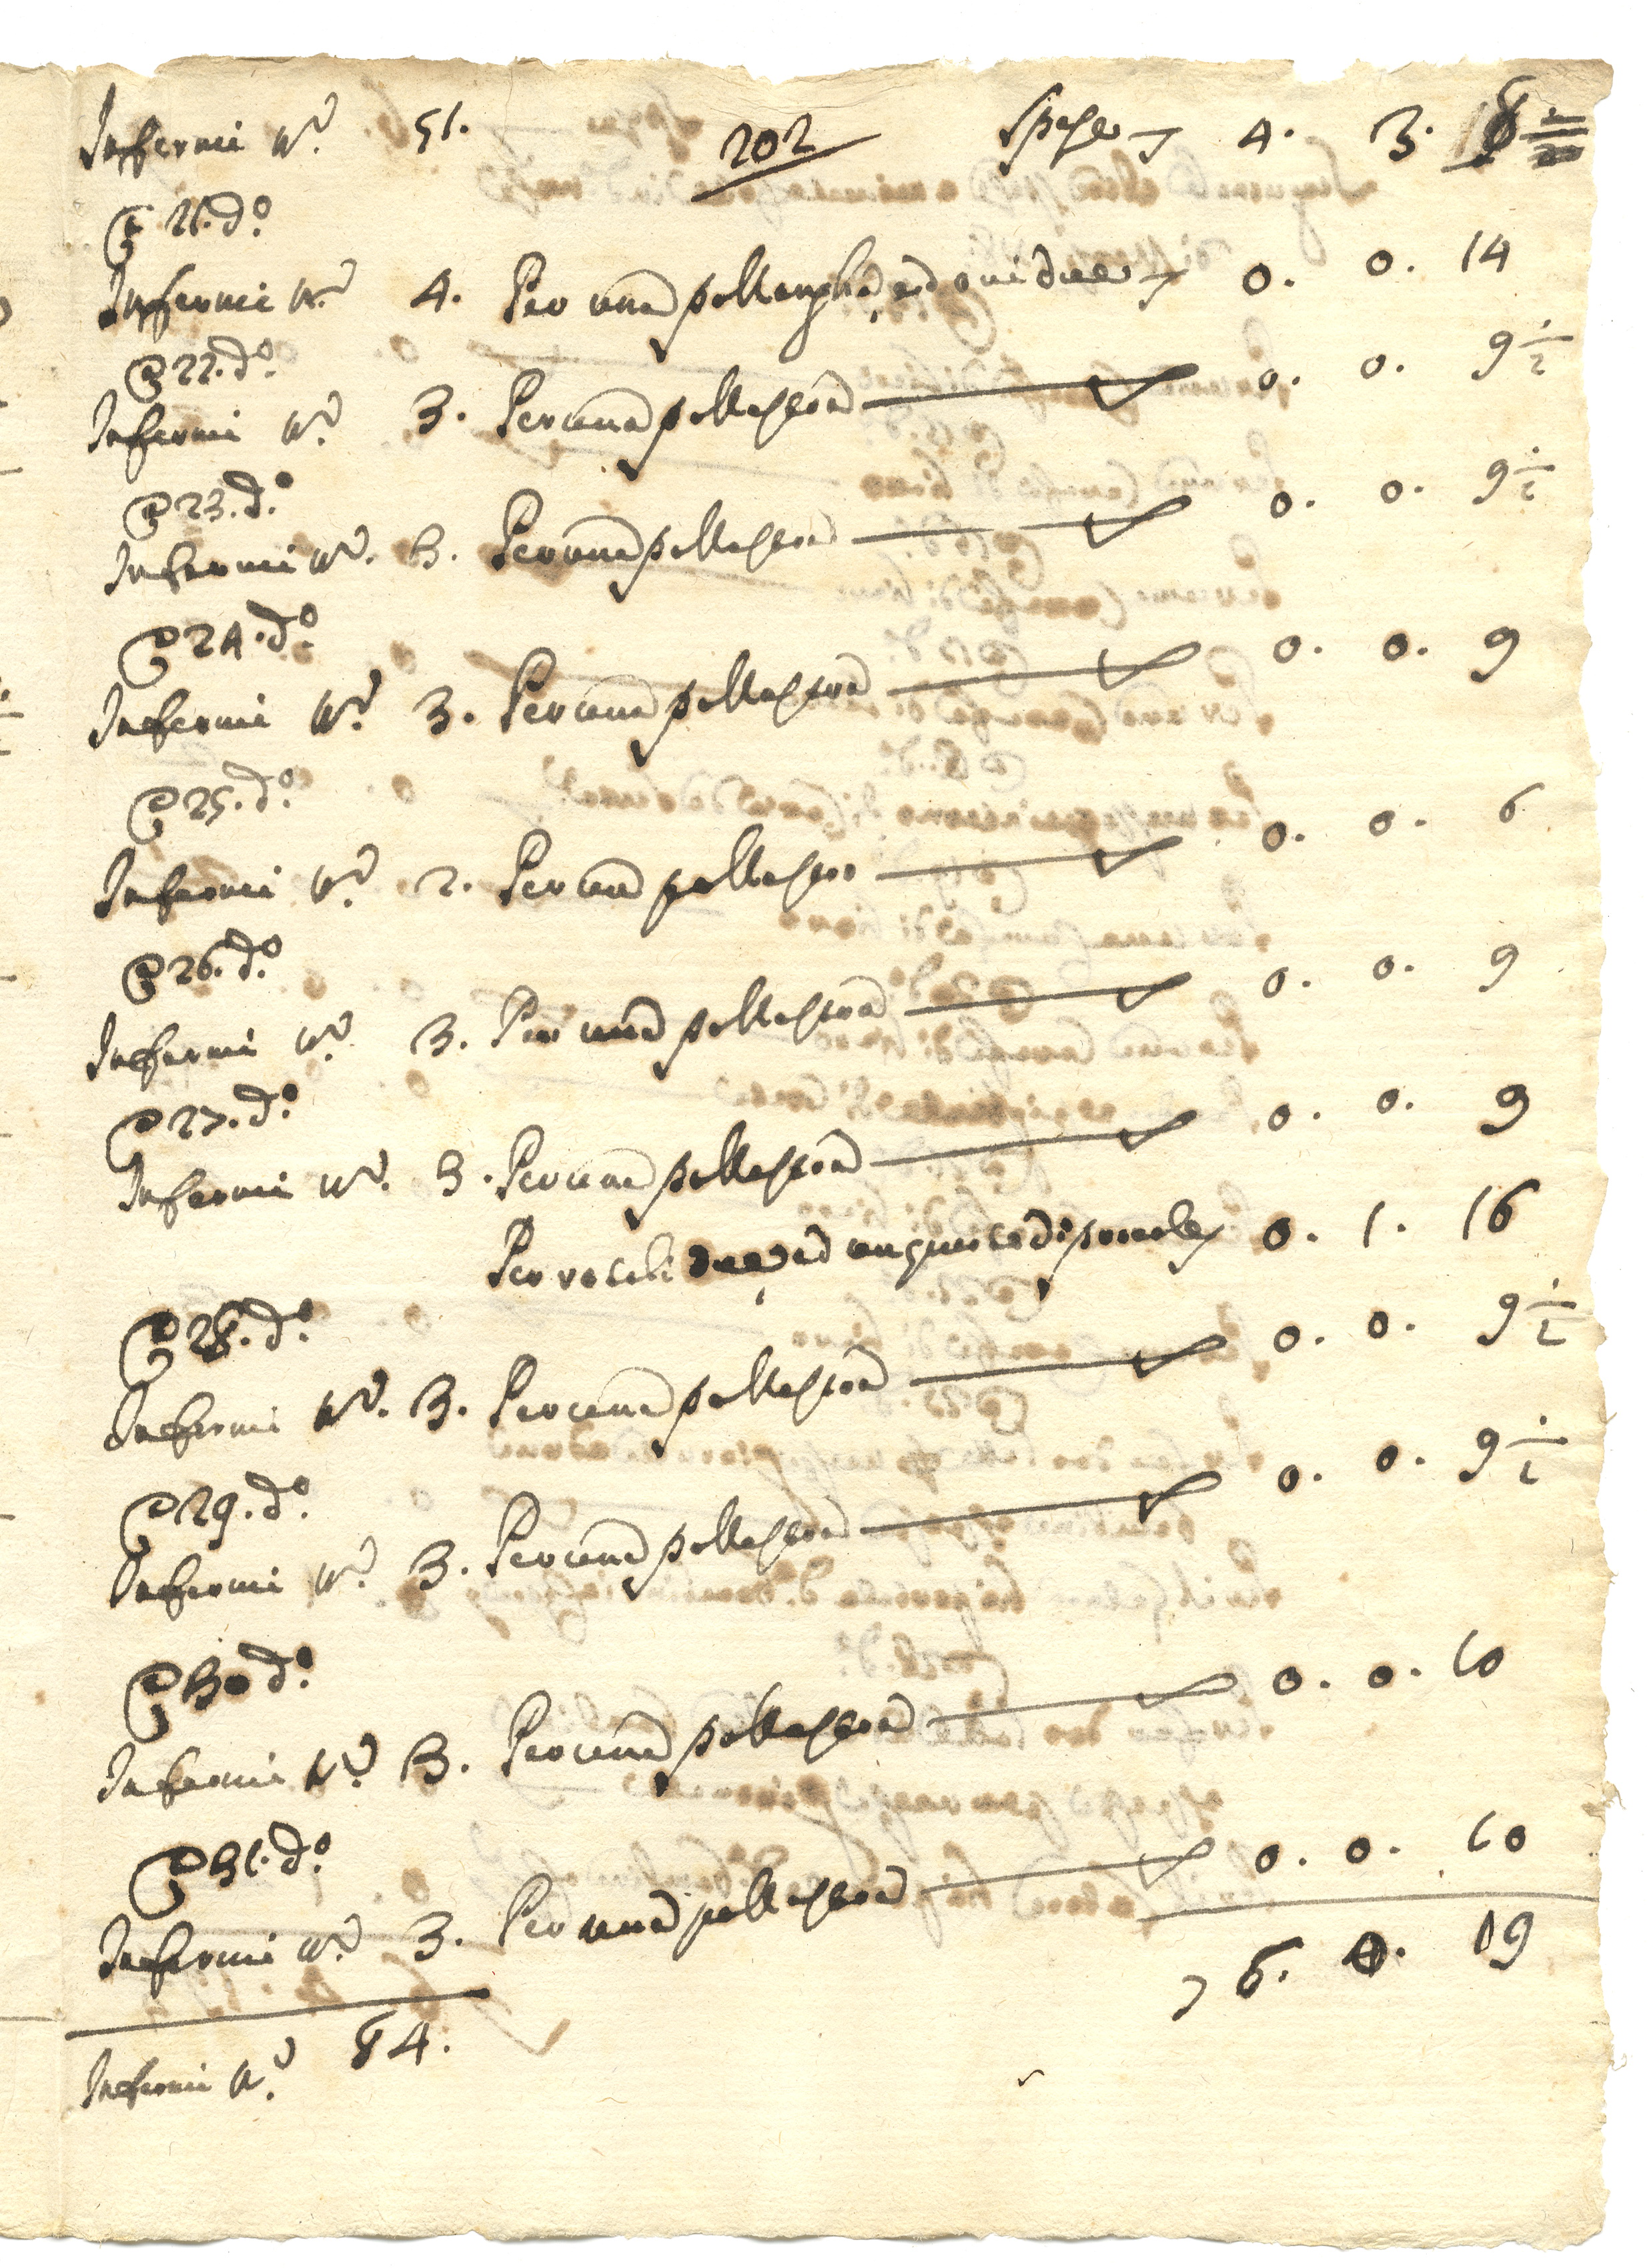 Infermi n.º 51. 202 Spese 4. 3. 18
A 21. d.º
Infermi n.º 4. Per una pollanghа, ed ovi due 0. 0. 14
A 22. d.º
Infermi n.º 3. Per una pollastra 0. 0. 9 1/2
A 23. d.º
Infermi n.º 3. Per una pollastra 0. 0. 9 1/2
A 24. d.º
Infermi n.º 3. Per una pollastra 0. 0. 9
A 25. d.º
Infermi n.º 2. Per una pollastra 0. 0. 6
A 26. d.º
Infermi n.º 3. Per una pollastra 0. 0. 9
A 27. d.º
Infermi n.º 3. Per una pollastra 0. 0. 9
Per rotoli due, ed 0. 1. 16
A 28. d.º
Infermi n.º 3. Per una pollastra 0. 0. 9 1/2
A 29. d.º
Infermi n.º 3. Per una pollastra 0. 0. 9 1/2
A 30 d.º
Infermi n.º 3. Per una pollastra 0. 0. 10
A 31. d.º
Infermi n.º 3. Per una pollastra 0. 0. 10
6. 0. 19
Infermi n.º 84.